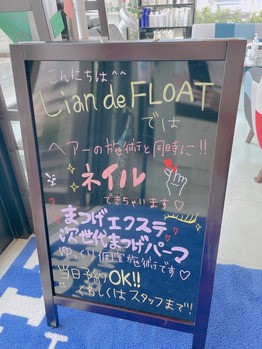 こんにちは^^
Lian de FLOAT
では
ヘアーの施術と同時に!!
ネイル
できちゃいます♡
まつげエクステ
次世代まつげパーマ
ゆっくり個室施術です♡
当日予約OK!!
くわしくはスタッフまで!